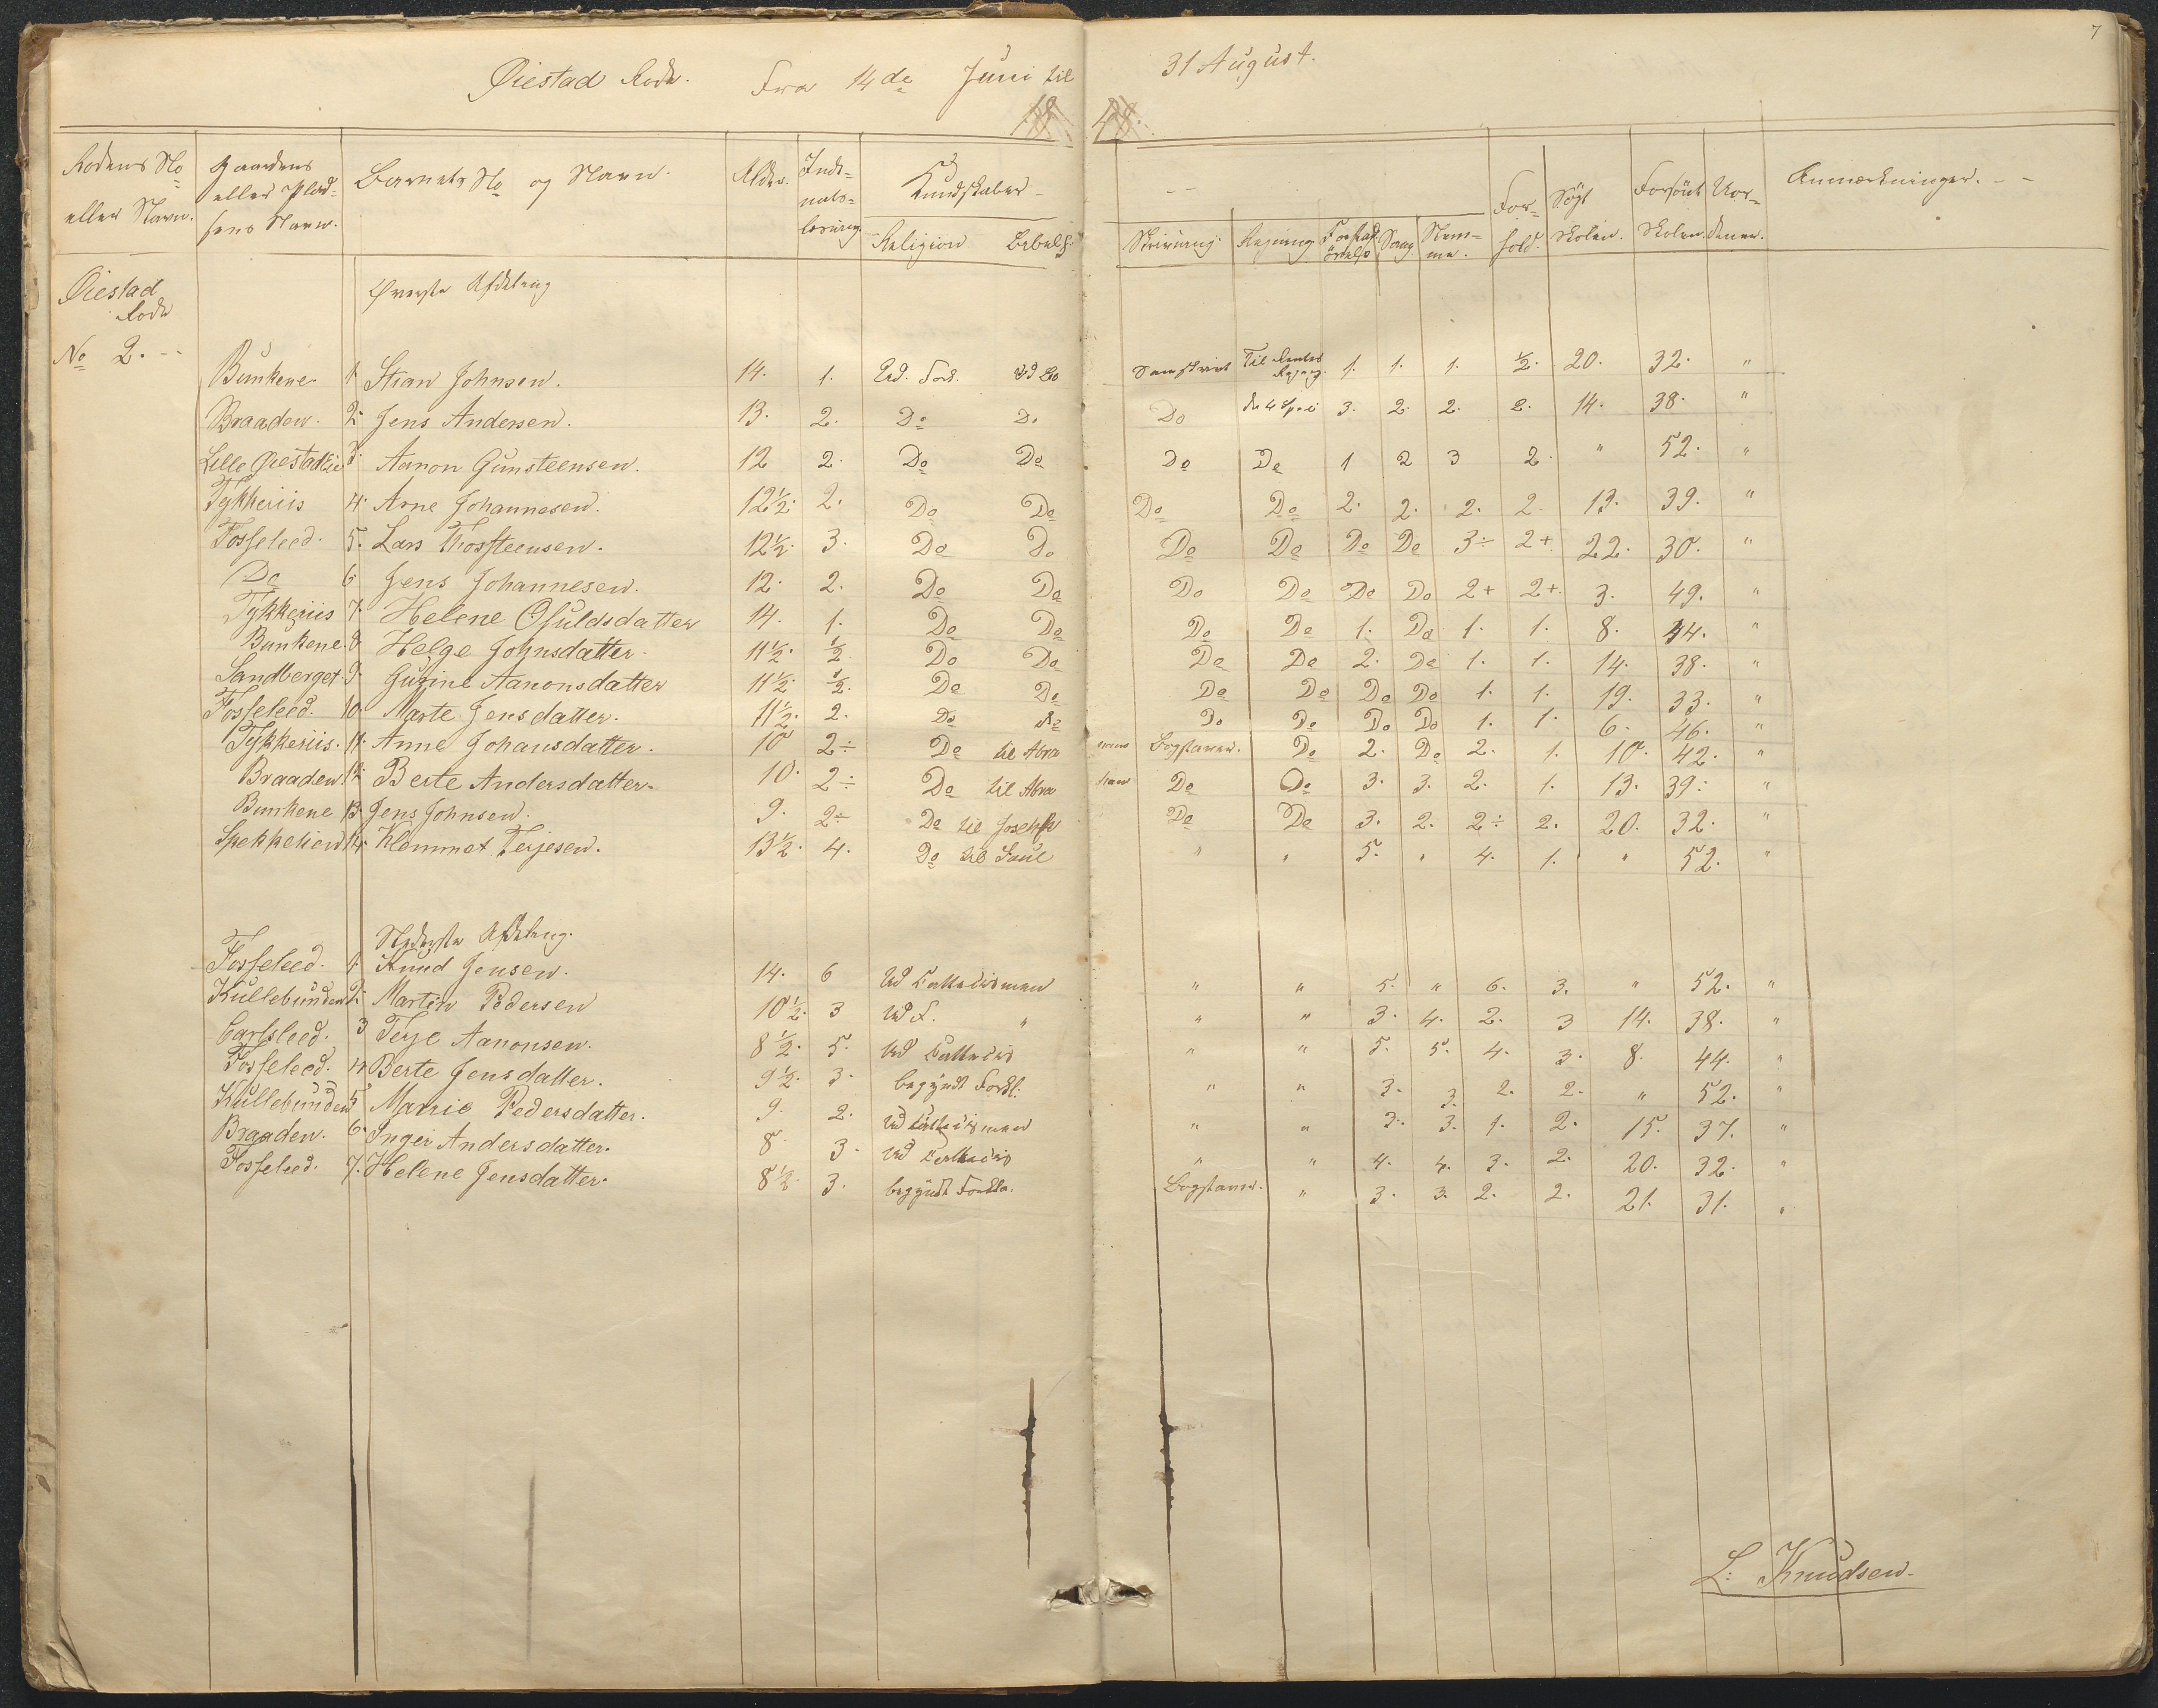 7
Øiestad Rode. Fra 14de Juni til 31 August.
Rodens No eller Navn. Gaardens eller Pladsens Navn. Barnets No og Navn. Alder. Indenadslæsning Kundskaber Religion Bibelh: Skrivning Regning Sang Nemme. Forhold. Søgt Skolen. Forsømt Skolen. Anmærkninger.
Øiestad Rode No 2. Øverste Afdeling
Bunkene 1 Stian Johnsen. 14. 1. Ud. Fork. Ud Do Til 1. 1. 1. ½. 20. 32. "
Braaden. 2. Jens Andersen. 13. 2. Do Do Do 3. 2. 2. 2. 14. 38. "
Lille Øiestad 3. Aanon Gunsteensen. 12 2. Do Do Do Do 1 2 3 2. " 52. "
Tykkeriis 4. Arne Johannesen. 12½. 2. Do Do Do Do 2. 2. 2. 2. 13. 39. "
Fosseleed. 5. Lars Thorsteensen. 12½. 3. Do Do Do Do Do Do 3÷ 2+ 22. 30. "
Do 6 Jens Johannesen. 12. 2. Do Do Do Do Do Do 2+ 2+. 3. 49. "
Tykkeriis 7. Helene Osuldsdatter 14. 1. Do Do Do Do 1. Do 1. 1. 8. 44. "
Bunkene. 8 Helge Johnsdatter. 11½. ½. Do Do Do Do 2. Do 1. 1. 14. 38. "
Sandberget. 9. Gurine Aanonsdatter 11½. ½. Do Do Do Do Do Do 1. 1. 19. 33. "
Fosseleed. 10 Marte Jensdatter. 11½. 2. Do Do Do Do Do Do 1. 1. 6. 46. "
Tykkeriis. 11. Anne Johansdatter. 10 2÷ Do til Abra Bogstaver. Do 2. Do 2. 1. 10. 42. "
Braaden 12. Berte Andersdatter. 10. 2÷ Do til Abra ham Do Do 3. 3. 2. 1. 13. 39. "
Bunkene 13 Jens Johnsen. 9. 2÷ Do til Joseph Do Do 3. 2. 2÷ 2. 20. 32. "
14. Klemmet Terjesen. 13½. 4. Do til Saul " " 5. " 4. 1. " 52. "
Nederste Afdeling.
Fosseleed. 1. Knud Jensen. 14. 6 Ud " " 5. " 6. 3. " 52. "
Kullebunden 2. Martin Pedersen 10½. 3 Ud F. " " " 3. 4. 2. 3 14. 38. "
Carlsleed. 3 Terje Aanonsen. 8½. 5. Ud " " 5. 5. 4. 3. 8. 44. "
Fosseleed. 4. Berte Jensdatter. 9½. 3. begyndt Forkl: " " 3. 3. 2. 2. " 52. "
Kullebunden 5 Marie Pedersdatter. 9. 2. Ud " " 3. 3. 1. 2. 15. 37. "
Braaden. 6. Inger Andersdatter. 8 3. Ud " " 4. 4. 3. 2. 20. 32. "
Fosseleed. 7. Helene Jensdatter. 8½. 3. begyndt Forkla. Bogstaver. " 3. 3. 2. 2. 21. 31. "
L: Knudsen.